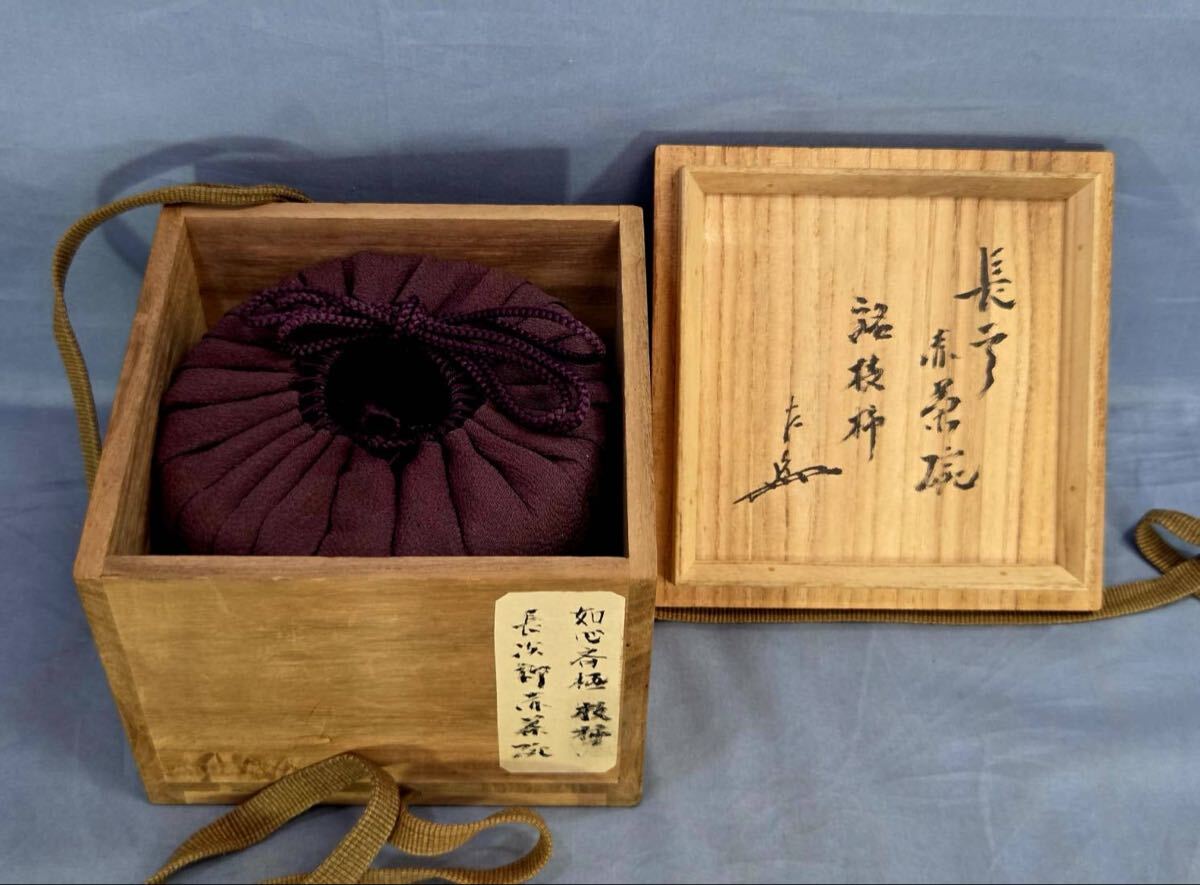 長次郎
赤茶碗
銘 枝柿
左(花押)
如心斎極 枝柿
長次郎赤茶碗